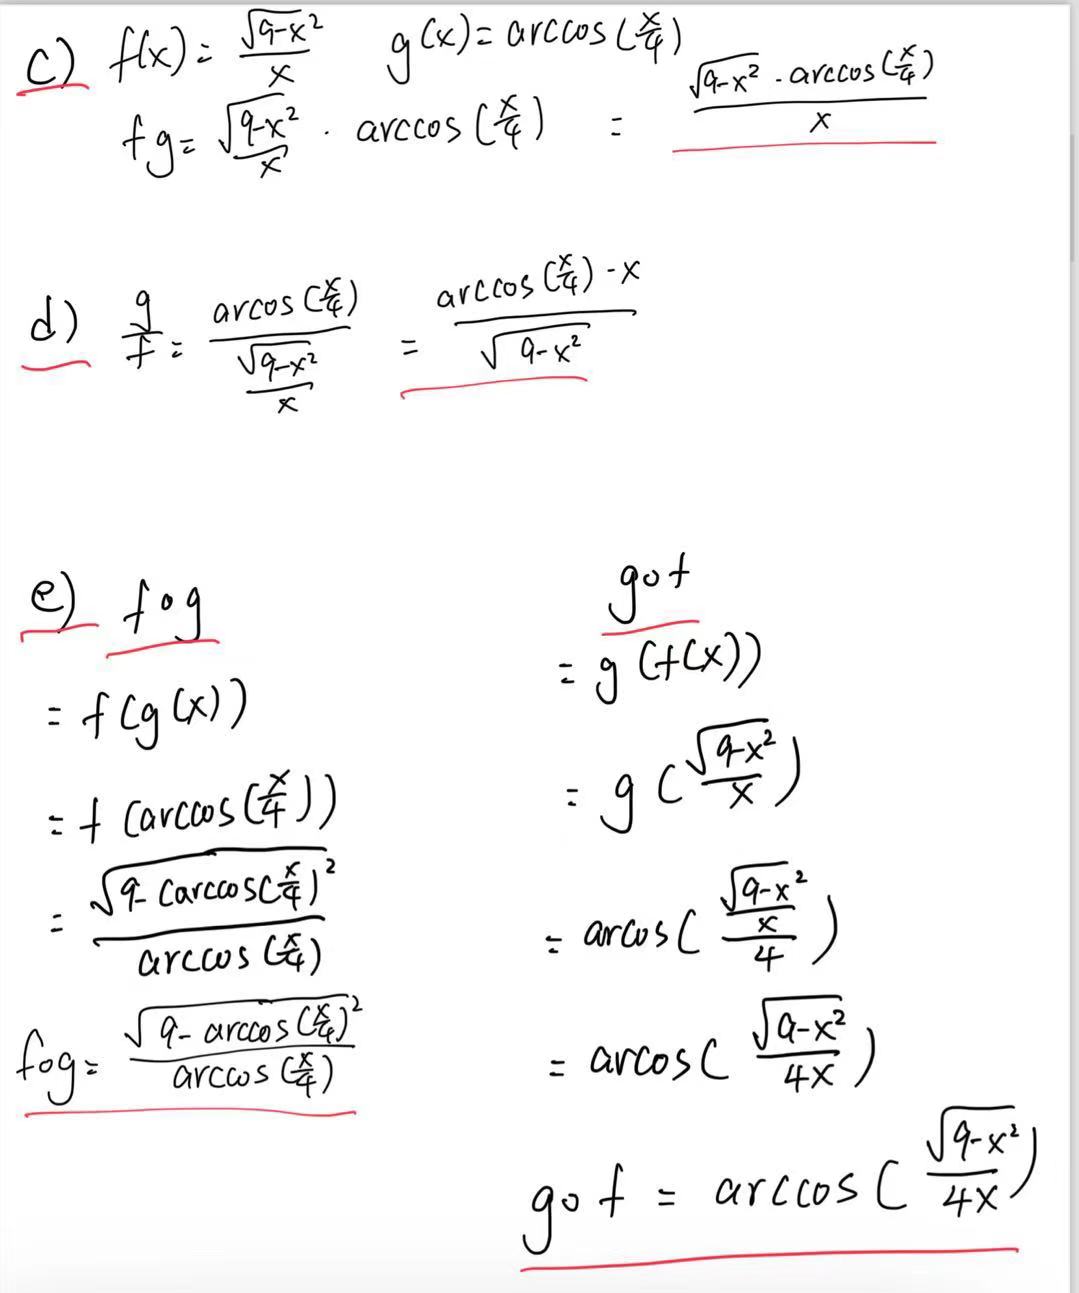 c) f(x) = √(9-x²)/x   g(x) = arccos(x/4)
fg = √(9-x²)/x · arccos(x/4) = √(9-x²) · arccos(x/4) / x
d) g/f = arcos(x/4) / (√(9-x²)/x) = arccos(x/4) · x / √(9-x²)
e) fog
= f(g(x))
= f(arccos(x/4))
= √(9-(arccos(x/4))² / arccos(x/4)
fog = √(9-arccos(x/4)² / arccos(x/4)
gof
= g(f(x))
= g(√(9-x²)/x)
= arcos((√(9-x²)/x)/4)
= arcos(√(9-x²)/4x)
gof = arccos(√(9-x²)/4x)